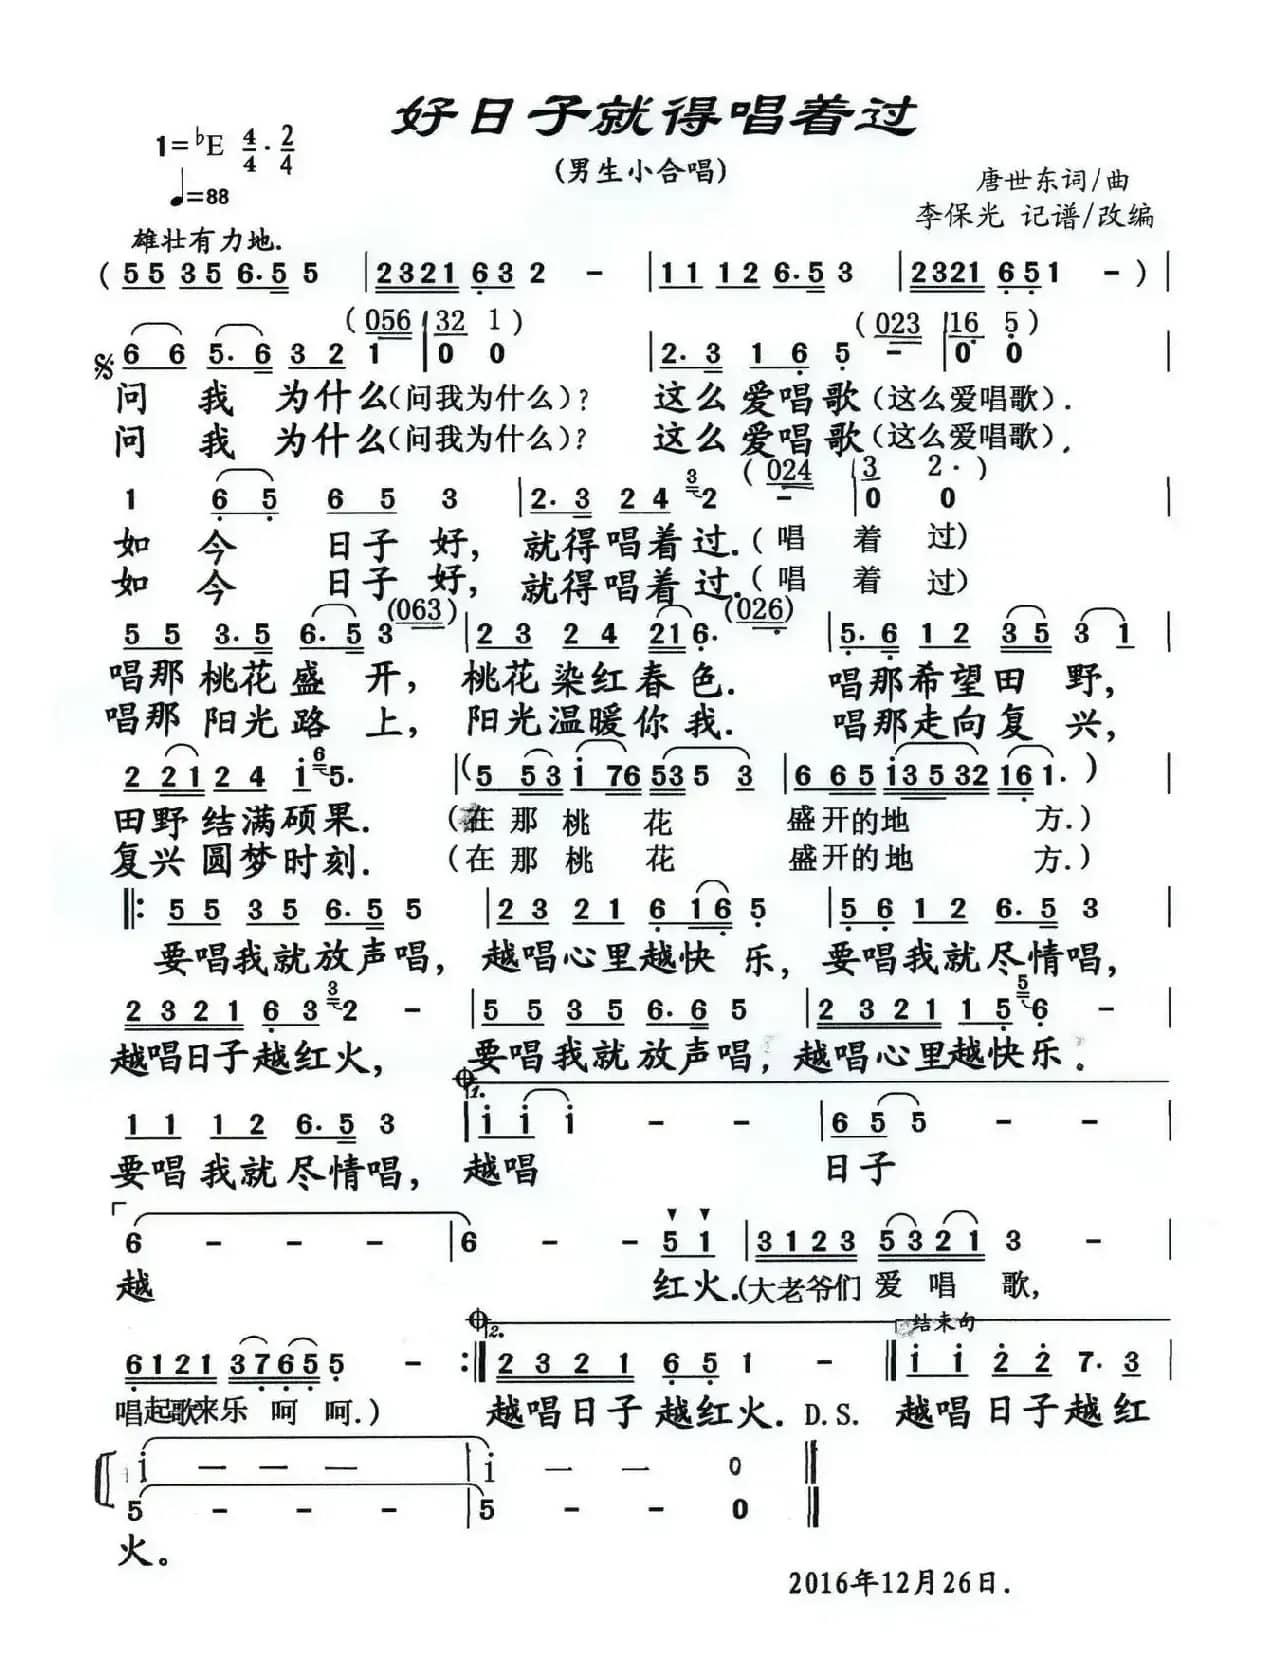 好日子就得唱着过
(男生小合唱)
1=♭E 4/4 · 2/4
♩=88
唐世东词/曲
李保光 记谱/改编
雄壮有力地.
( 55 35 6·5 5 | 2321 63 2 - | 11 12 6·5 3 | 2321 651 - ) |
(056 | 32 1) (023 | 16 5)
6 6 5·6 3 2 1 | 0 0 | 2·3 1 6 5 - | 0 0 |
问 我 为什么(问我为什么)? 这么爱唱歌(这么爱唱歌).
问 我 为什么(问我为什么)? 这么爱唱歌(这么爱唱歌).
(024 | 3 2·)
1 6 5 6 5 3 | 2·3 2 4 3 2 - | 0 0 |
如 今 日子 好, 就得唱着过.(唱 着 过)
如 今 日子 好, 就得唱着过.(唱 着 过)
(063) (026)
5 5 3·5 6·5 3 | 2 3 2 4 21 6· | 5·6 1 2 3 5 3 1 |
唱那 桃花 盛 开, 桃花染红春色. 唱那希望田 野,
唱那 阳光 路 上, 阳光温暖你我. 唱那走向复 兴,
2 21 2 4 i 6 5· | (5 53 i 76 53 5 3 | 6 65 i3532 161·) |
田野 结满硕果. (在那桃 花 盛开的地 方.)
复兴 圆梦时刻. (在那桃 花 盛开的地 方.)
‖: 5 5 3 5 6·5 5 | 2 3 2 1 6 16 5 | 5 6 1 2 6·5 3 |
要唱我就放声唱, 越唱心里越快 乐, 要唱我就尽情唱,
2 3 2 1 6 3 3 2 - | 5 5 3 5 6·6 5 | 2 3 2 1 1 5 5 6 - |
越唱日子越红火, 要唱我就放声唱, 越唱心里越快乐.
1.
1 1 1 2 6·5 3 | i i i - - | 6 5 5 - - |
要唱 我就 尽情唱, 越唱 日子
6 - - - | 6 - - 5 1 | 3123 5321 3 - |
越 红火.(大老爷们 爱 唱 歌,
2. 结束句
6121 3765 5 - :‖ 2 3 2 1 6 5 1 - ‖ i i 2 2 7·3 |
唱起歌来乐 呵 呵.) 越唱日子 越红火. D.S. 越唱日子越红
i — — — | i — — 0 ‖
5 - - - | 5 - - 0 ‖
火。
2016年12月26日.